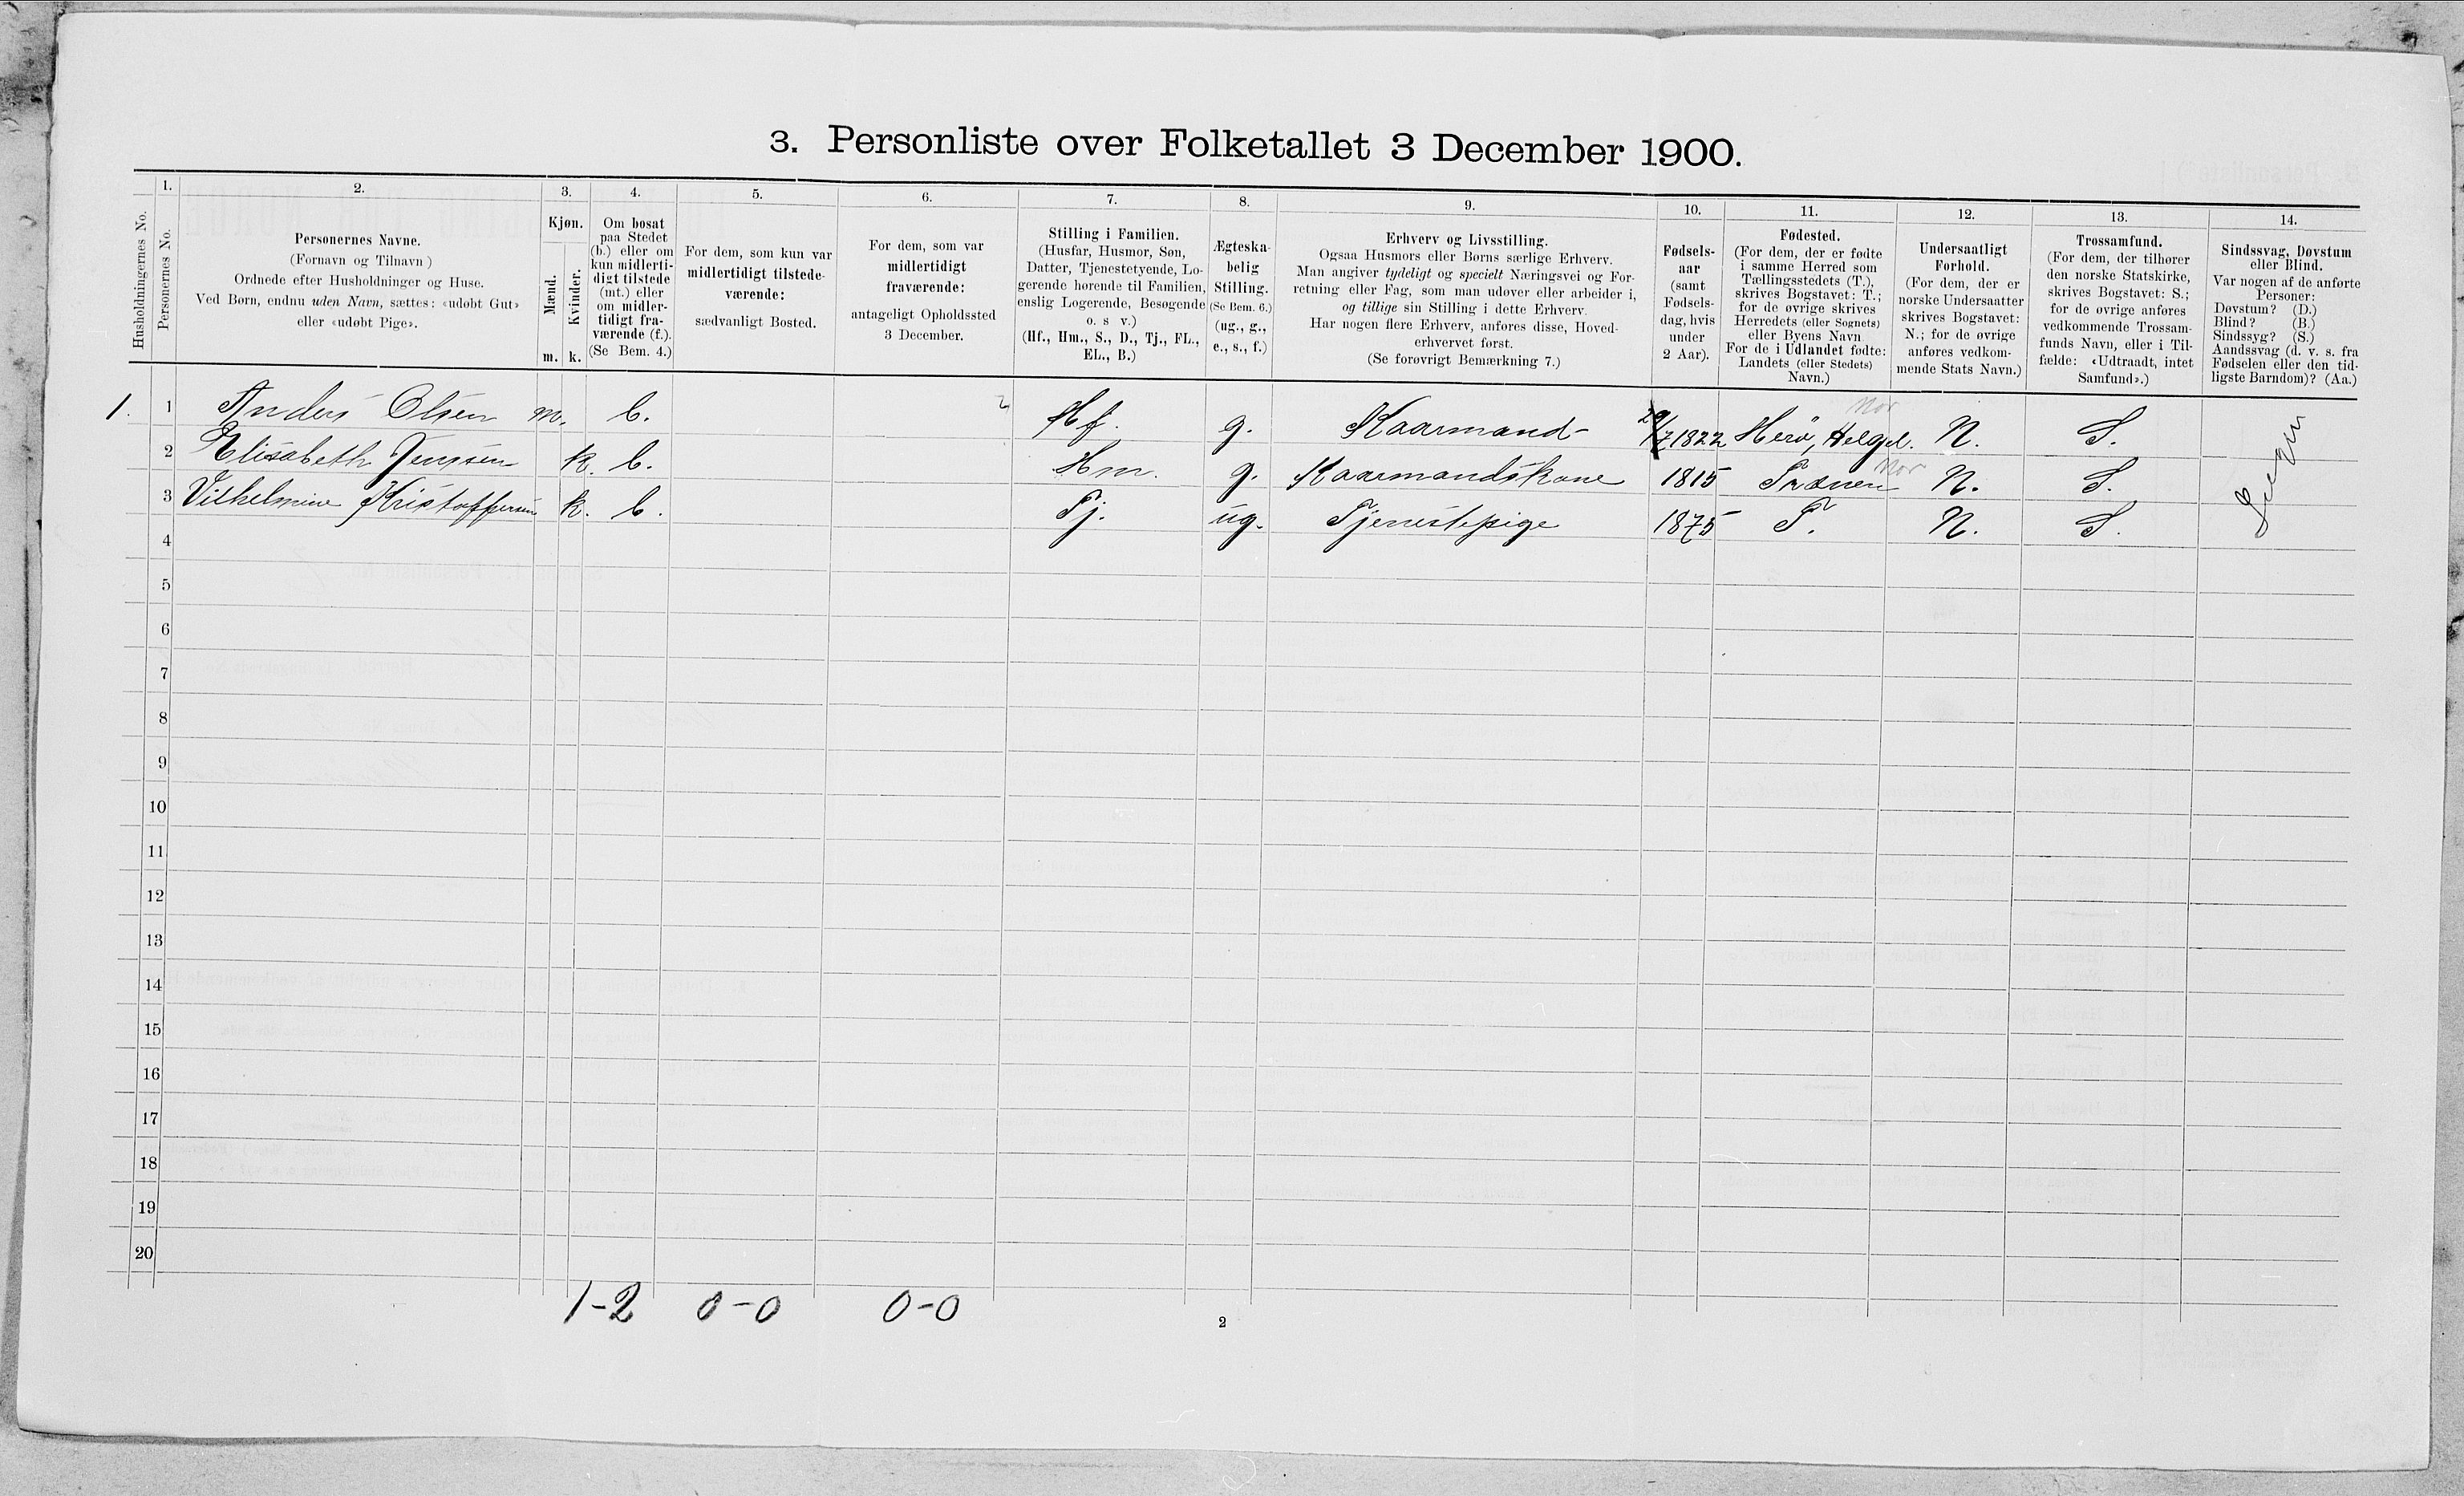 3. Personliste over Folketallet 3 December 1900.
1. 2. 3. 4. 5. 6. 7. 8. 9. 10. 11. 12. 13. 14.
Husholdningernes No.
Personernes No.
Personernes Navne.
(Fornavn og Tilnavn)
Ordnede efter Husholdninger og Huse.
Ved Børn, endnu uden Navn, sættes: «udøbt Gut»
eller «udøbt Pige».
Kjøn.
Mænd.
Kvinder.
m. k.
Om bosat
paa Stedet
(b.) eller om
kun midlerti-
digt tilstede
(mt.) eller
om midler-
tidigt fra-
værende (f.).
(Se Bem. 4.)
For dem, som kun var
midlertidigt tilstede-
værende:
sædvanligt Bosted.
For dem, som var
midlertidigt
fraværende:
antageligt Opholdssted
3 December.
Stilling i Familien.
(Husfar, Husmor, Søn,
Datter, Tjenestetyende, Lo-
gerende hørende til Familien,
enslig Logerende, Besøgende
o. s v.)
(Hf., Hm., S., D., Tj., FL.,
EL., B.)
Ægteska-
belig
Stilling.
(Se Bem. 6.)
(ug., g.,
e., s., f.)
Erhverv og Livsstilling.
Ogsaa Husmors eller Børns særlige Erhverv.
Man angiver tydeligt og specielt Næringsvei og For-
retning eller Fag, som man udøver eller arbeider i,
og tillige sin Stilling i dette Erhverv.
Har nogen flere Erhverv, anføres disse, Hoved-
erhvervet først.
(Se forøvrigt Bemærkning 7.)
Fødsels-
aar
(samt
Fødsels-
dag, hvis
under
2 Aar).
Fødested.
(For dem, der er fødte
i samme Herred som
Tællingsstedets (T.),
skrives Bogstavet: T.;
for de øvrige skrives
Herredets (eller Sognets)
eller Byens Navn
For de i Udlandet fødte:
Landets (eller Stedets)
Navn.)
Undersaatligt
Forhold.
(For dem, der er
norske Undersaatter
skrives Bogstavet:
N.; for de øvrige
anføres vedkom-
mende Stats Navn.)
Trossamfund.
(For dem, der tilhører
den norske Statskirke,
skrives Bogstavet: S.;
for de øvrige anføres
vedkommende Trossam-
funds Navn, eller i Til-
fælde: «Udtraadt, intet
Samfund».)
Sindssvag, Døvstum
eller Blind.
Var nogen af de anførte
Personer:
Døvstum? (D.)
Blind? (B.)
Sindssyg? (S.)
Aandssvag (d. v. s. fra
Fødselen eller den tid-
ligste Barndom)? (Aa.)
1. 1 Anders Olsen m. b. 2 Hf. g. Kaarmand 29/7 1822 Herö, Helgel. Nor N. S.
2 Elisabeth Jenssen k. b. Hm. g. Kaarmandskone 1815 Trænen Nor N. S.
3 Vilhelmine Kristoffersen k. b. Tj. ug. Tjenestepige 1875 T. N. S.
4
5
6
7
8
9
10
11
12
13
14
15
16
17
18
19
20
1-2 0-0 0-0
2